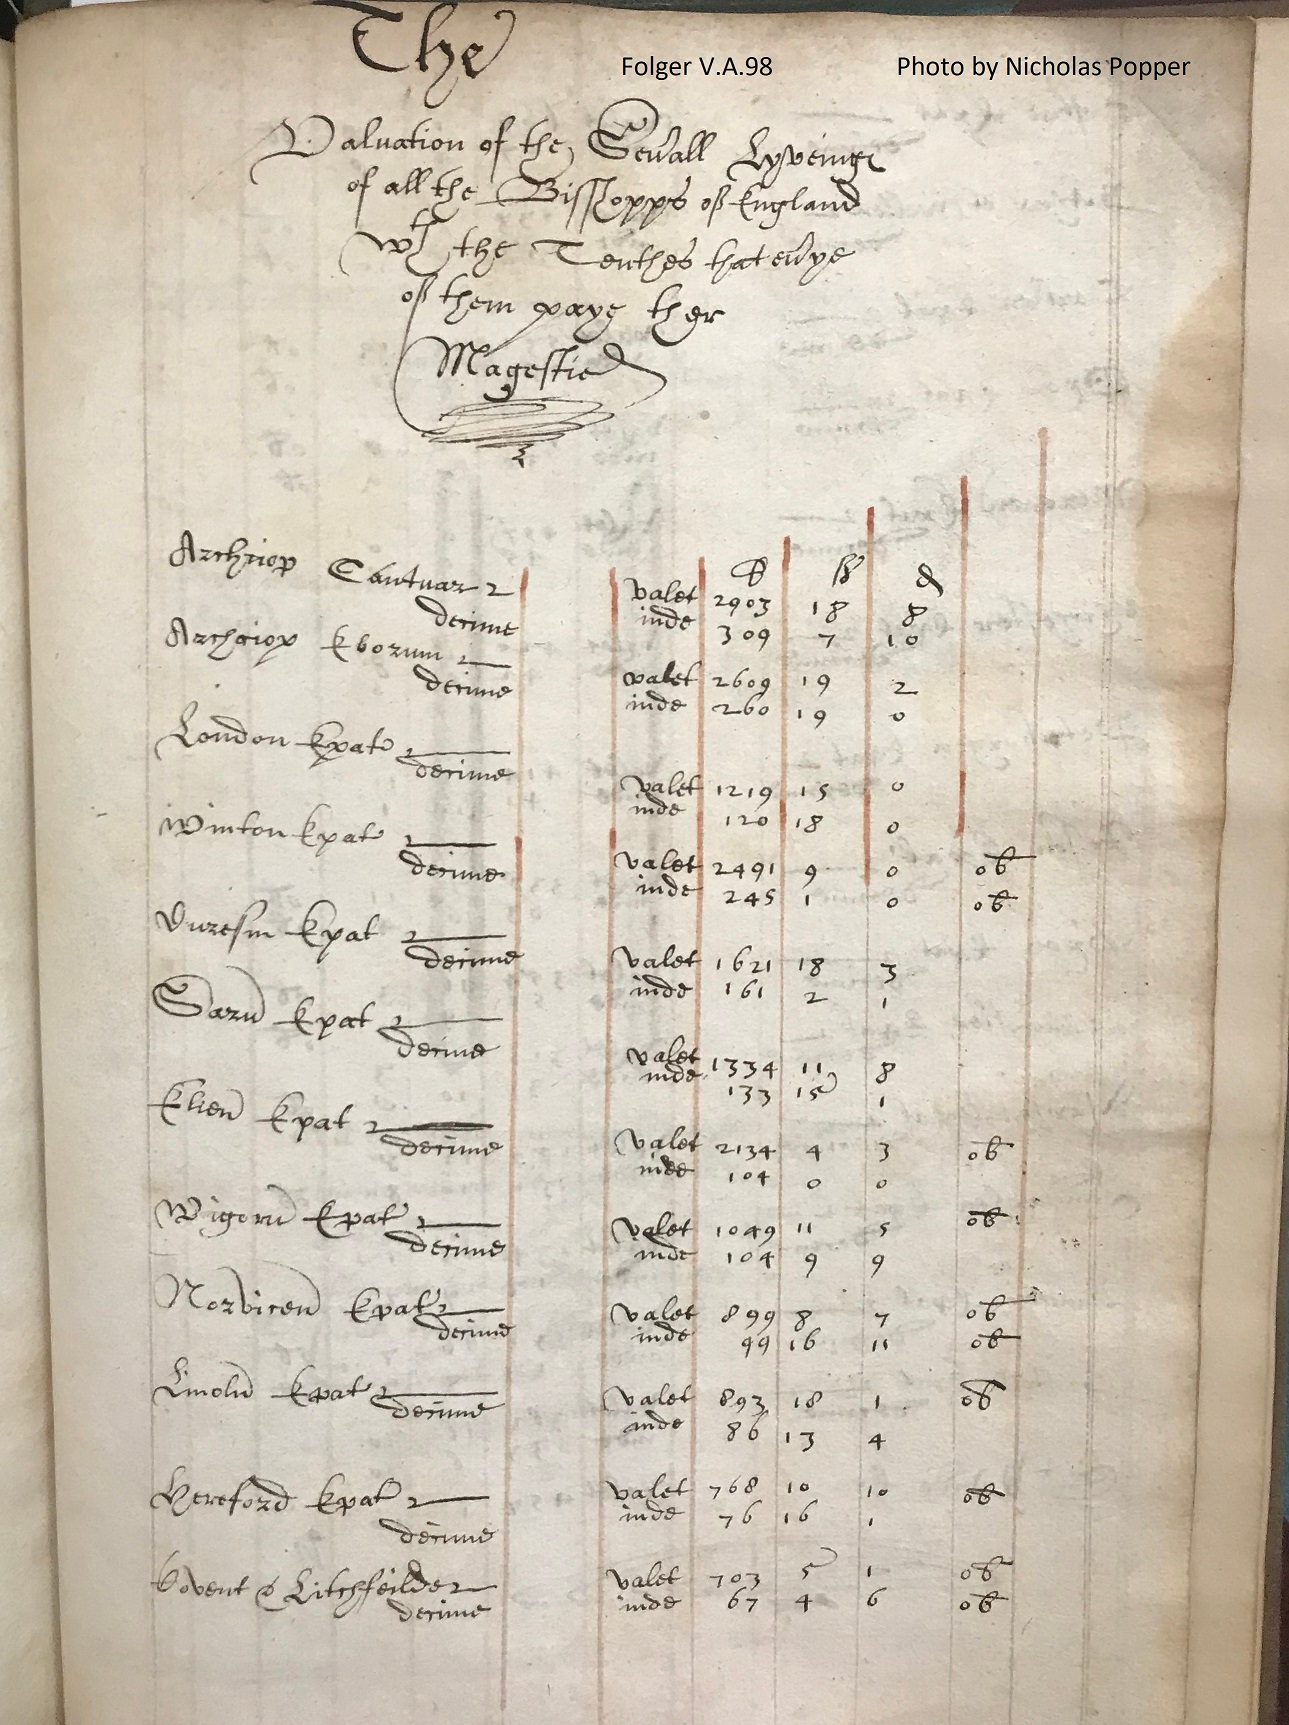 The
Folger V.A.98 Photo by Nicholas Popper
Valuation of the Seuall Lyveings
of all the Bisshopps of England
wth the Tenthes that euye
of them paye ther
Magestie
li s d
Archiop Cantuar valet 2903 18 8
decime inde 309 7 10
Archiop Eborum valet 2609 19 2
decime inde 260 19 0
London Epat valet 1219 15 0
decime inde 120 18 0
Winton Epat valet 2491 9 0 ob
decime inde 245 1 0 ob
Duresm Epat valet 1621 18 3
decime inde 161 2 1
Sarum Epat valet 1334 11 8
decime inde 133 15 1
Elien Epat valet 2134 4 3 ob
decime inde 104 0 0
Wigorn Epat valet 1049 11 5 ob
decime inde 104 9 9
Norvicen Epat valet 899 8 7 ob
decime inde 99 16 11 ob
Lincoln Epat valet 893 18 1 ob
decime inde 86 13 4
Hereford Epat valet 768 10 10 ob
decime inde 76 16 1
Covent & Litchfeilde valet 703 5 1 ob
decime inde 67 4 6 ob